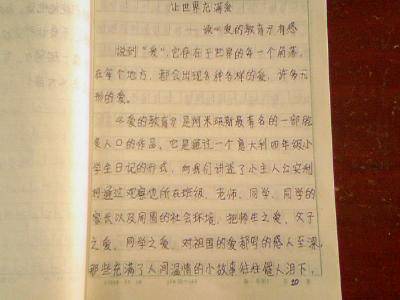 让世界充满爱
——读《爱的教育》有感
说到“爱”，它存在于世界的每一个角落，
在每个地方，都会出现各种各样的爱，许多无
形的爱。
《爱的教育》是阿米琪斯最著名的一部脍
炙人口的作品。它是通过一个意大利四年级小
学生日记的形式，向我们讲述了小主人公安利
柯通过观察他所在班级、老师、同学、同学的
家长以及周围的社会环境，把师生之爱、父子
之爱、同学之爱、对祖国的爱都写的感人至深，
那些充满了人间温情的小故事往往催人泪下，